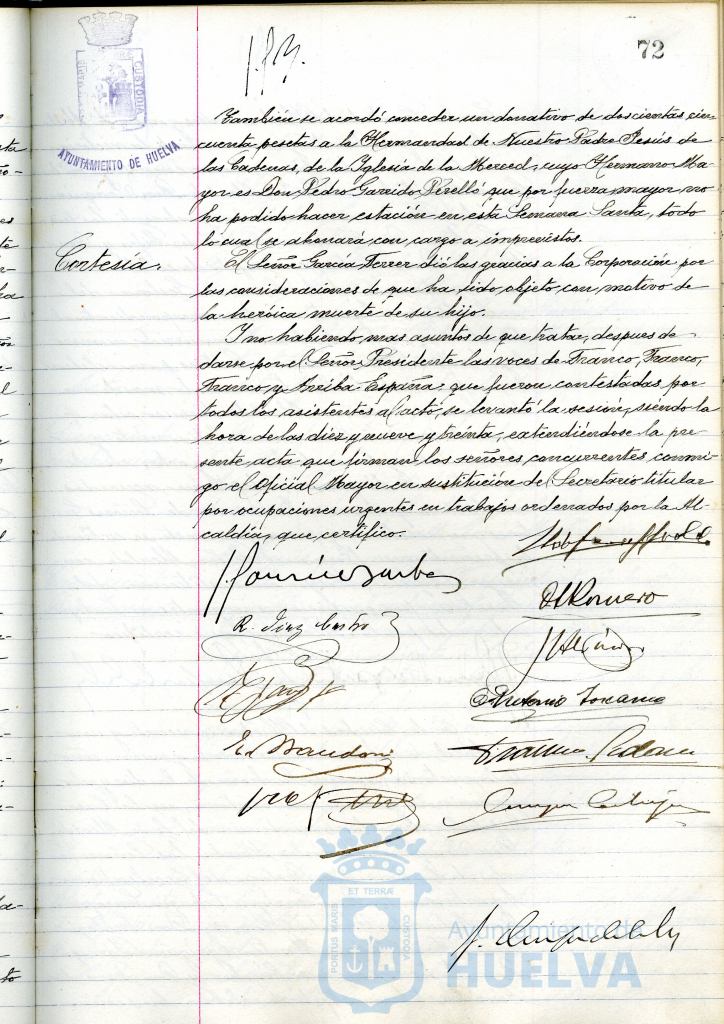 72
AYUNTAMIENTO DE HUELVA
CUSTODIA
También se acordó conceder un donativo de doscientas cin-
cuenta pesetas a la Hermandad de Nuestro Padre Jesús de
las Cadenas, de la Iglesia de la Merced, cuyo Hermano Ma-
yor es Don Pedro Garrido Perelló, que por fuerza mayor no
ha podido hacer estación en esta Semana Santa, todo
lo cual se abonará con cargo a imprevistos.
Cortesía.
El Señor García Ferrer dió las gracias a la Corporación por
las consideraciones de que ha sido objeto, con motivo de
la heróica muerte de su hijo.
Y no habiendo mas asuntos de que tratar, despues de
darse por el Señor Presidente las voces de Franco, Franco,
Franco y Arriba España, que fueron contestadas por
todos los asistentes al acto, se levantó la sesión, siendo la
hora de las diez y nueve y treinta, extendiéndose la pre
sente acta que firman los señores concurrentes conmi-
go el Oficial Mayor en sustitución del Secretario titular
por ocupaciones urgentes en trabajos ordenados por la Al-
caldía, que certifico.
Romero
R. Diaz
Antonio Toscano
PORTUS MARIS
ET TERRÆ
CUSTODIA
Ayuntamiento de
HUELVA